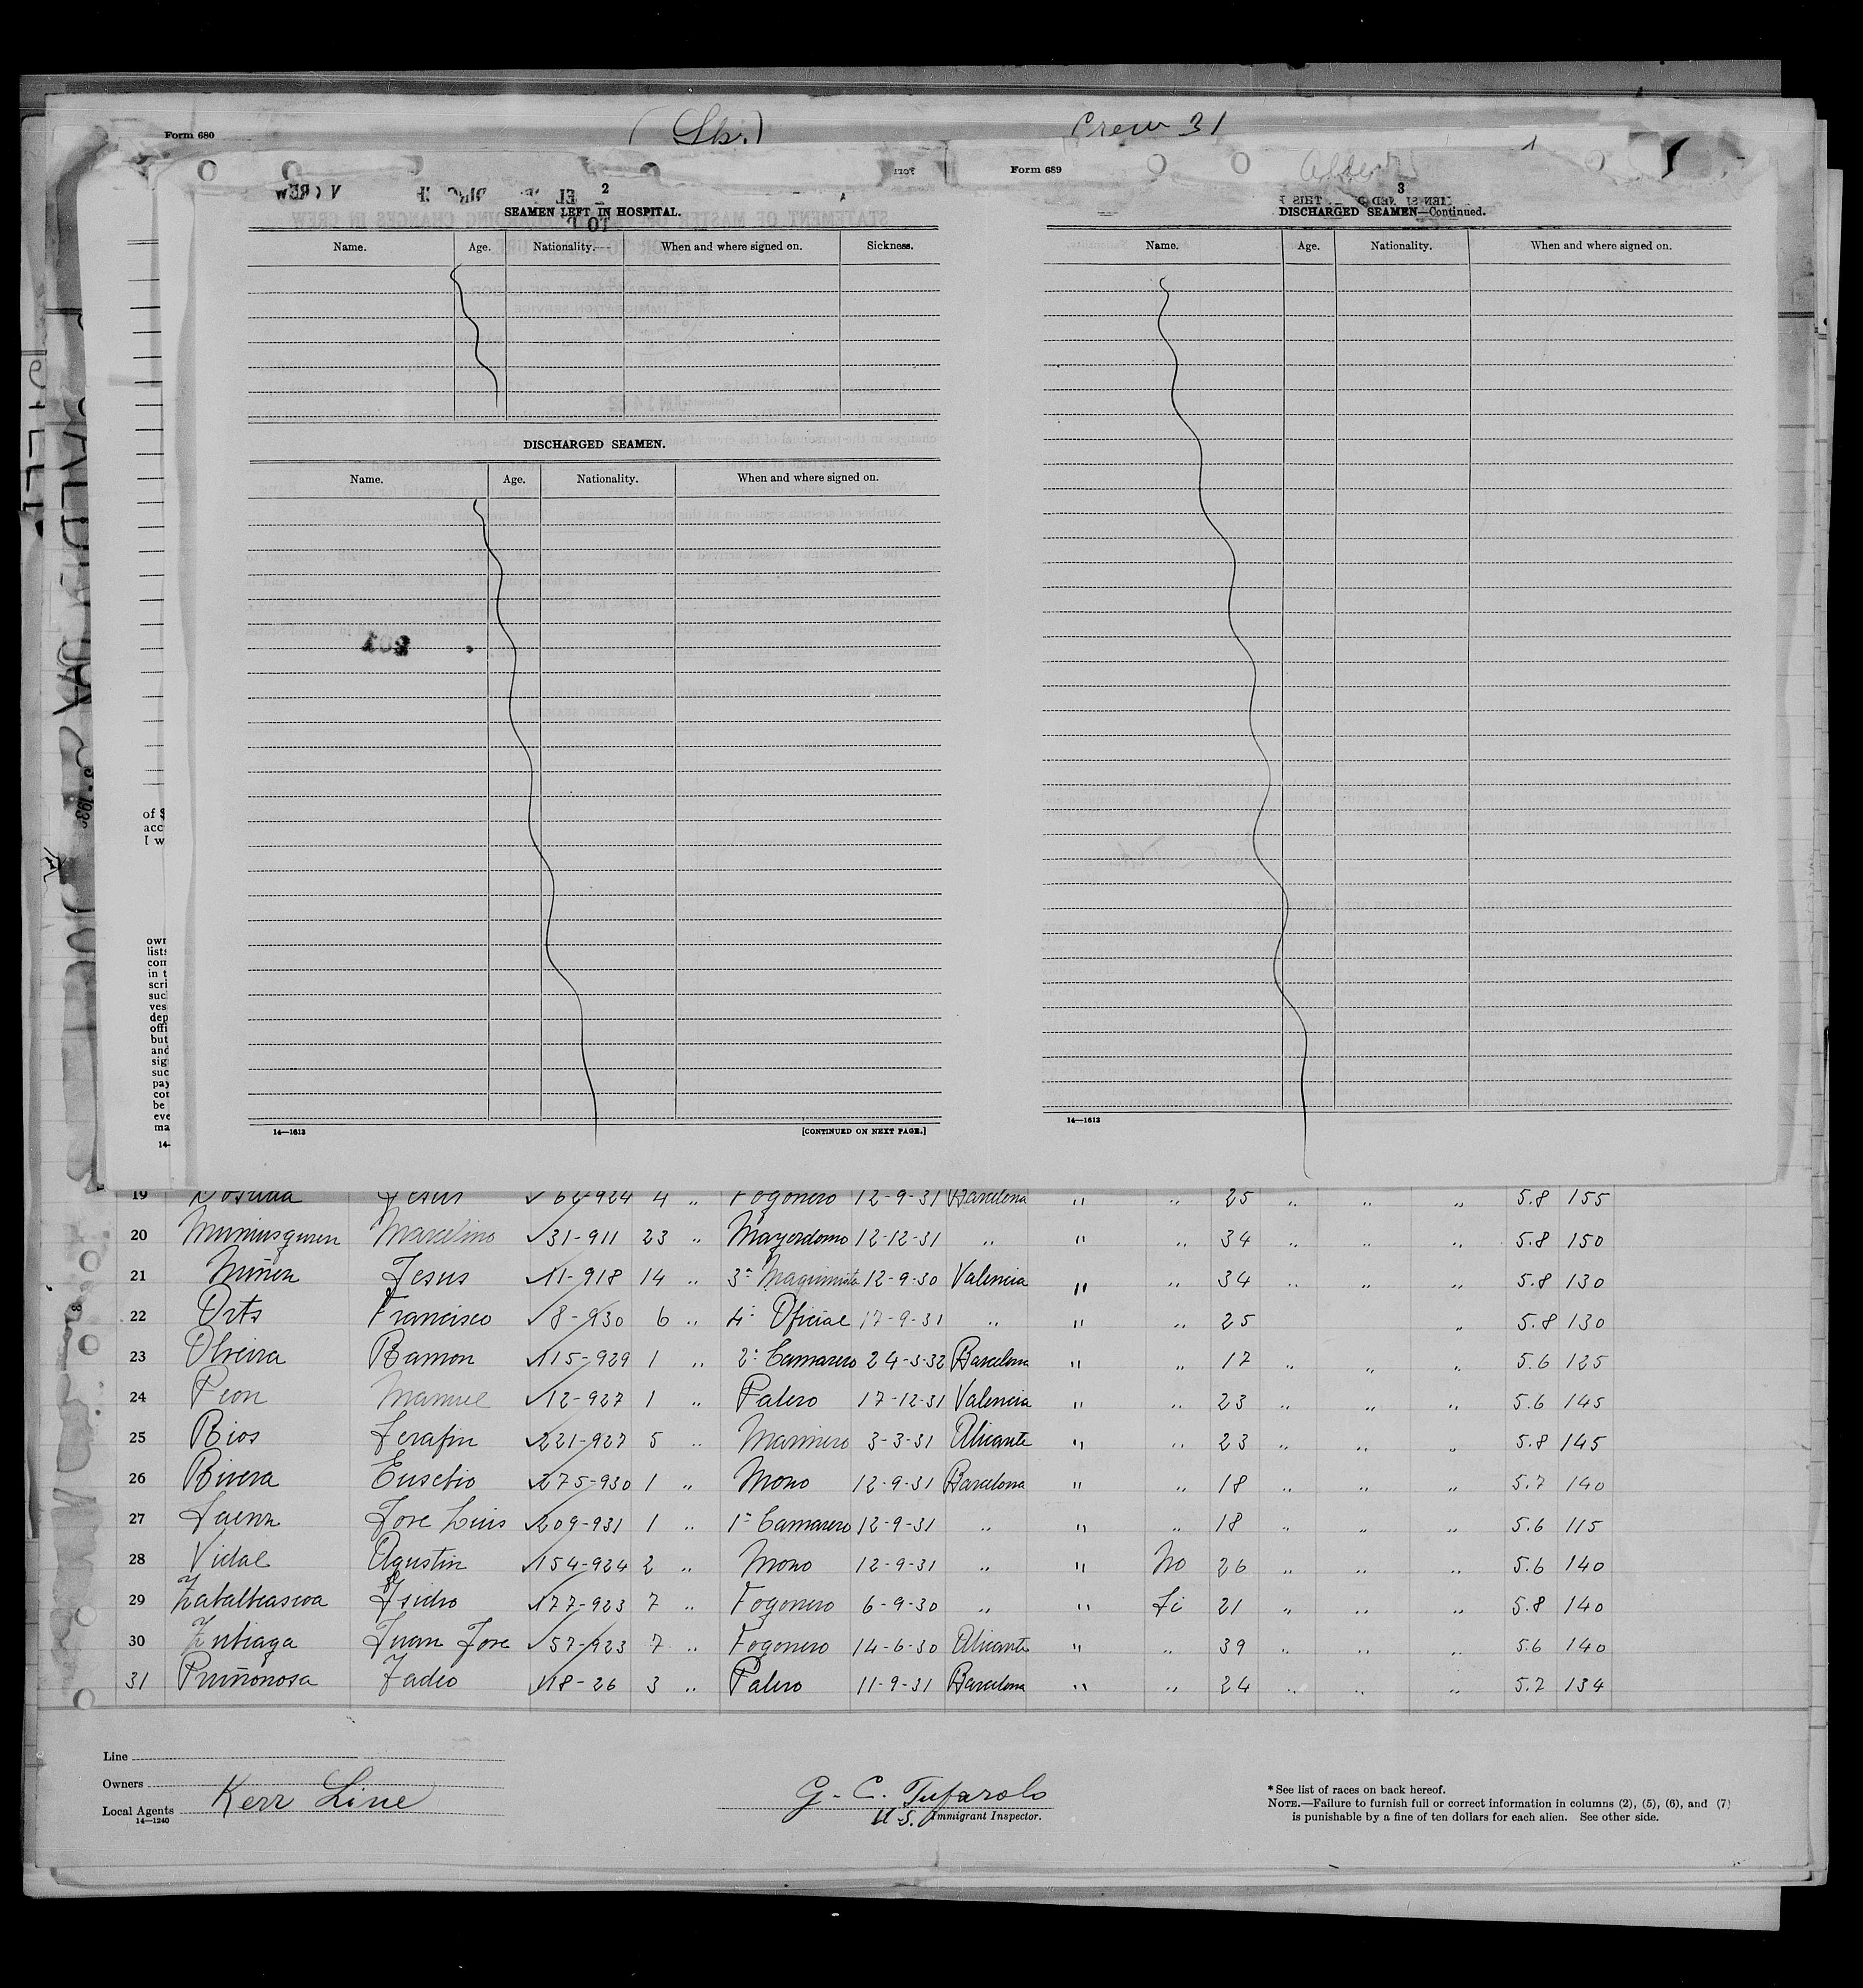 Form 680
( Sb.)
Crew 31
Form 689
2
SEAMEN LEFT IN HOSPITAL.
Name. Age. Nationality. When and where signed on. Sickness.
DISCHARGED SEAMEN.
Name. Age. Nationality. When and where signed on.
14—1613 [CONTINUED ON NEXT PAGE.]
3
DISCHARGED SEAMEN—Continued.
Name. Age. Nationality. When and where signed on.
14—1613
of $
acc
I w
own
lists
com
in t
scri
suc
ves
dep
offi
but
and
sig
suc
pay
con
be
eve
ma
14-
19 Jesus 62-924 4 " Fogonero 12-9-31 Barcelona " " 25 " " " 5.8 155
20 Marcelino 31-911 23 " Mayordomo 12-12-31 " " " 34 " " " 5.8 150
21 Jesus 11-918 14 " 3º Maquinista 12-9-30 Valencia " " 34 " " " 5.8 130
22 Orts Francisco 8-930 6 " 4º Oficial 17-9-31 " " " 25 " 5.8 130
23 Olveira Ramon 115-929 1 " 2º Camarero 24-3-32 Barcelona " " 17 " " " 5.6 125
24 Peon Manuel 12-927 1 " Palero 17-12-31 Valencia " " 23 " " " 5.6 145
25 Rios Serafin 221-927 5 " Marinero 3-3-31 Alicante " " 23 " " " 5.8 145
26 Rivera Eusebio 275-930 1 " Mono 12-9-31 Barcelona " " 18 " " " 5.7 140
27 Saenz Jose Luis 209-931 1 " 1º Camarero 12-9-31 " " " 18 " " " 5.6 115
28 Vidal Agustin 154-924 2 " Mono 12-9-31 " " No 26 " " " 5.6 140
29 Zabalbeascoa Isidro 177-923 7 " Fogonero 6-9-30 " " Si 21 " " " 5.8 140
30 Zubiaga Juan Jose 57-923 7 " Fogonero 14-6-30 Alicante " " 39 " " " 5.6 140
31 Puiñonosa Tadeo 18-26 3 " Palero 11-9-31 Barcelona " " 24 " " " 5.2 134
Line
Owners
Local Agents Kerr Line
14—1240
G. C. Tufarolo
U.S. Immigrant Inspector.
* See list of races on back hereof.
NOTE.—Failure to furnish full or correct information in columns (2), (5), (6), and (7)
is punishable by a fine of ten dollars for each alien. See other side.